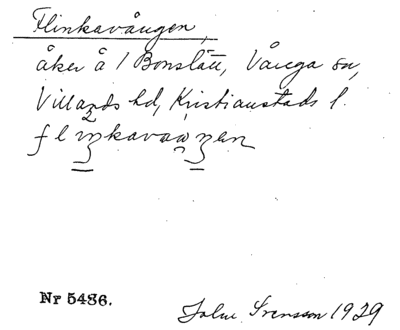 Flinkavången,
åker å 1 Bonslätt, Vånga sn,
Villands hd, Kristianstads l.
flinkavaaŋen
Nr 5486.
John Svensson 1929